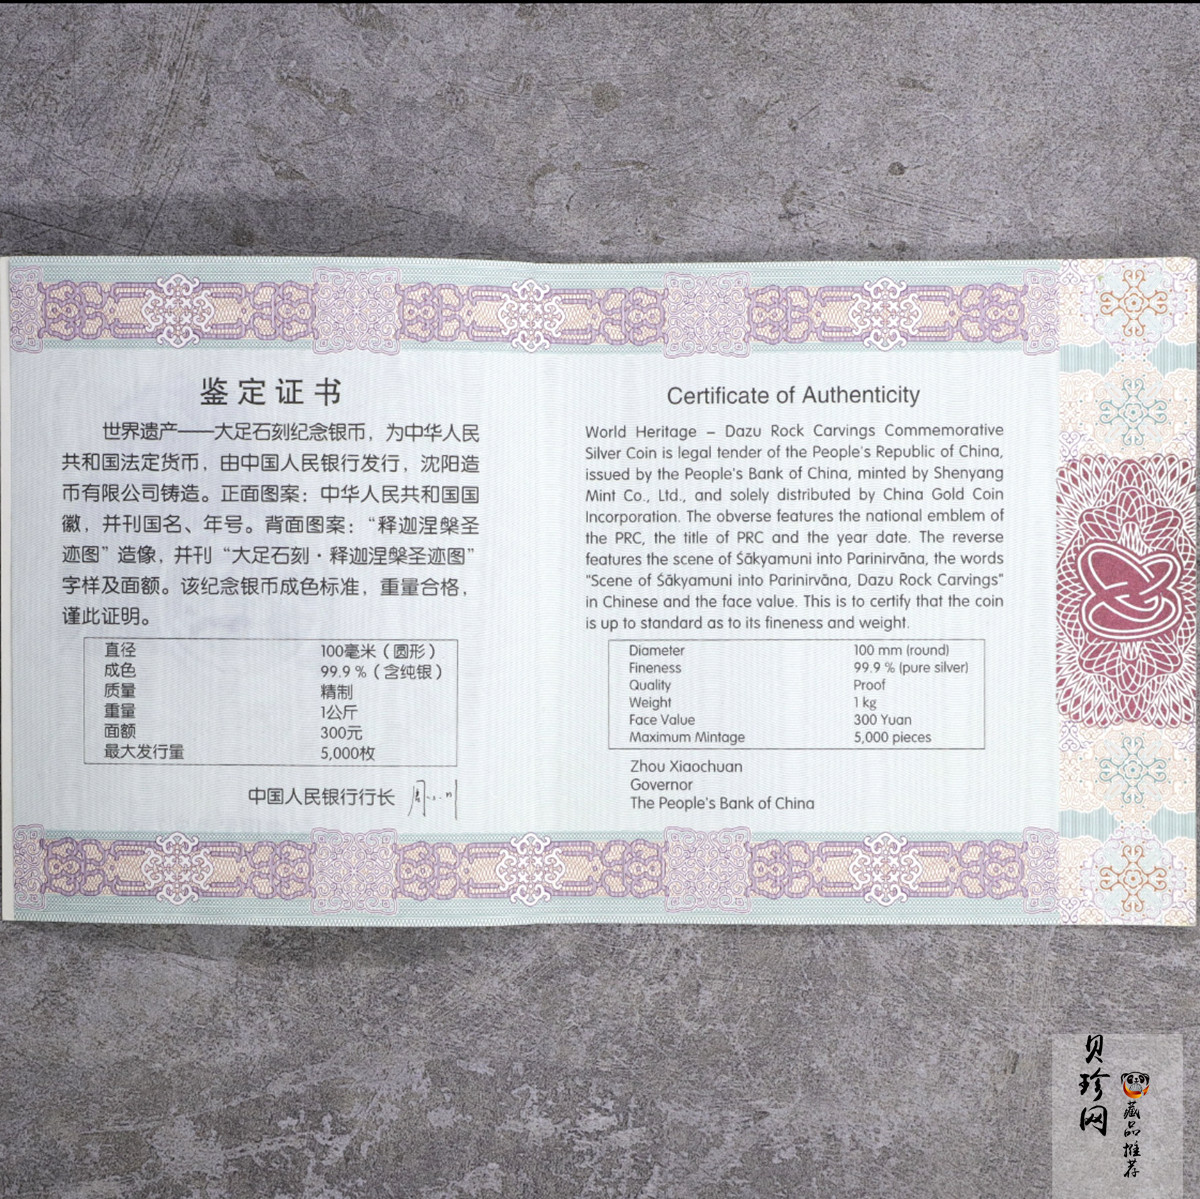 鉴定证书
世界遗产——大足石刻纪念银币，为中华人民
共和国法定货币，由中国人民银行发行，沈阳造
币有限公司铸造。正面图案：中华人民共和国国
徽，并刊国名、年号。背面图案：“释迦涅槃圣
迹图”造像，并刊“大足石刻·释迦涅槃圣迹图”
字样及面额。该纪念银币成色标准，重量合格，
谨此证明。
直径 100毫米（圆形）
成色 99.9 %（含纯银）
质量 精制
重量 1公斤
面额 300元
最大发行量 5,000枚
中国人民银行行长
Certificate of Authenticity
World Heritage – Dazu Rock Carvings Commemorative
Silver Coin is legal tender of the People's Republic of China,
issued by the People's Bank of China, minted by Shenyang
Mint Co., Ltd., and solely distributed by China Gold Coin
Incorporation. The obverse features the national emblem of
the PRC, the title of PRC and the year date. The reverse
features the scene of Śākyamuni into Parinirvāna, the words
"Scene of Śākyamuni into Parinirvāna, Dazu Rock Carvings"
in Chinese and the face value. This is to certify that the coin
is up to standard as to its fineness and weight.
Diameter 100 mm (round)
Fineness 99.9 % (pure silver)
Quality Proof
Weight 1 kg
Face Value 300 Yuan
Maximum Mintage 5,000 pieces
Zhou Xiaochuan
Governor
The People's Bank of China
贝珍网
藏品推荐